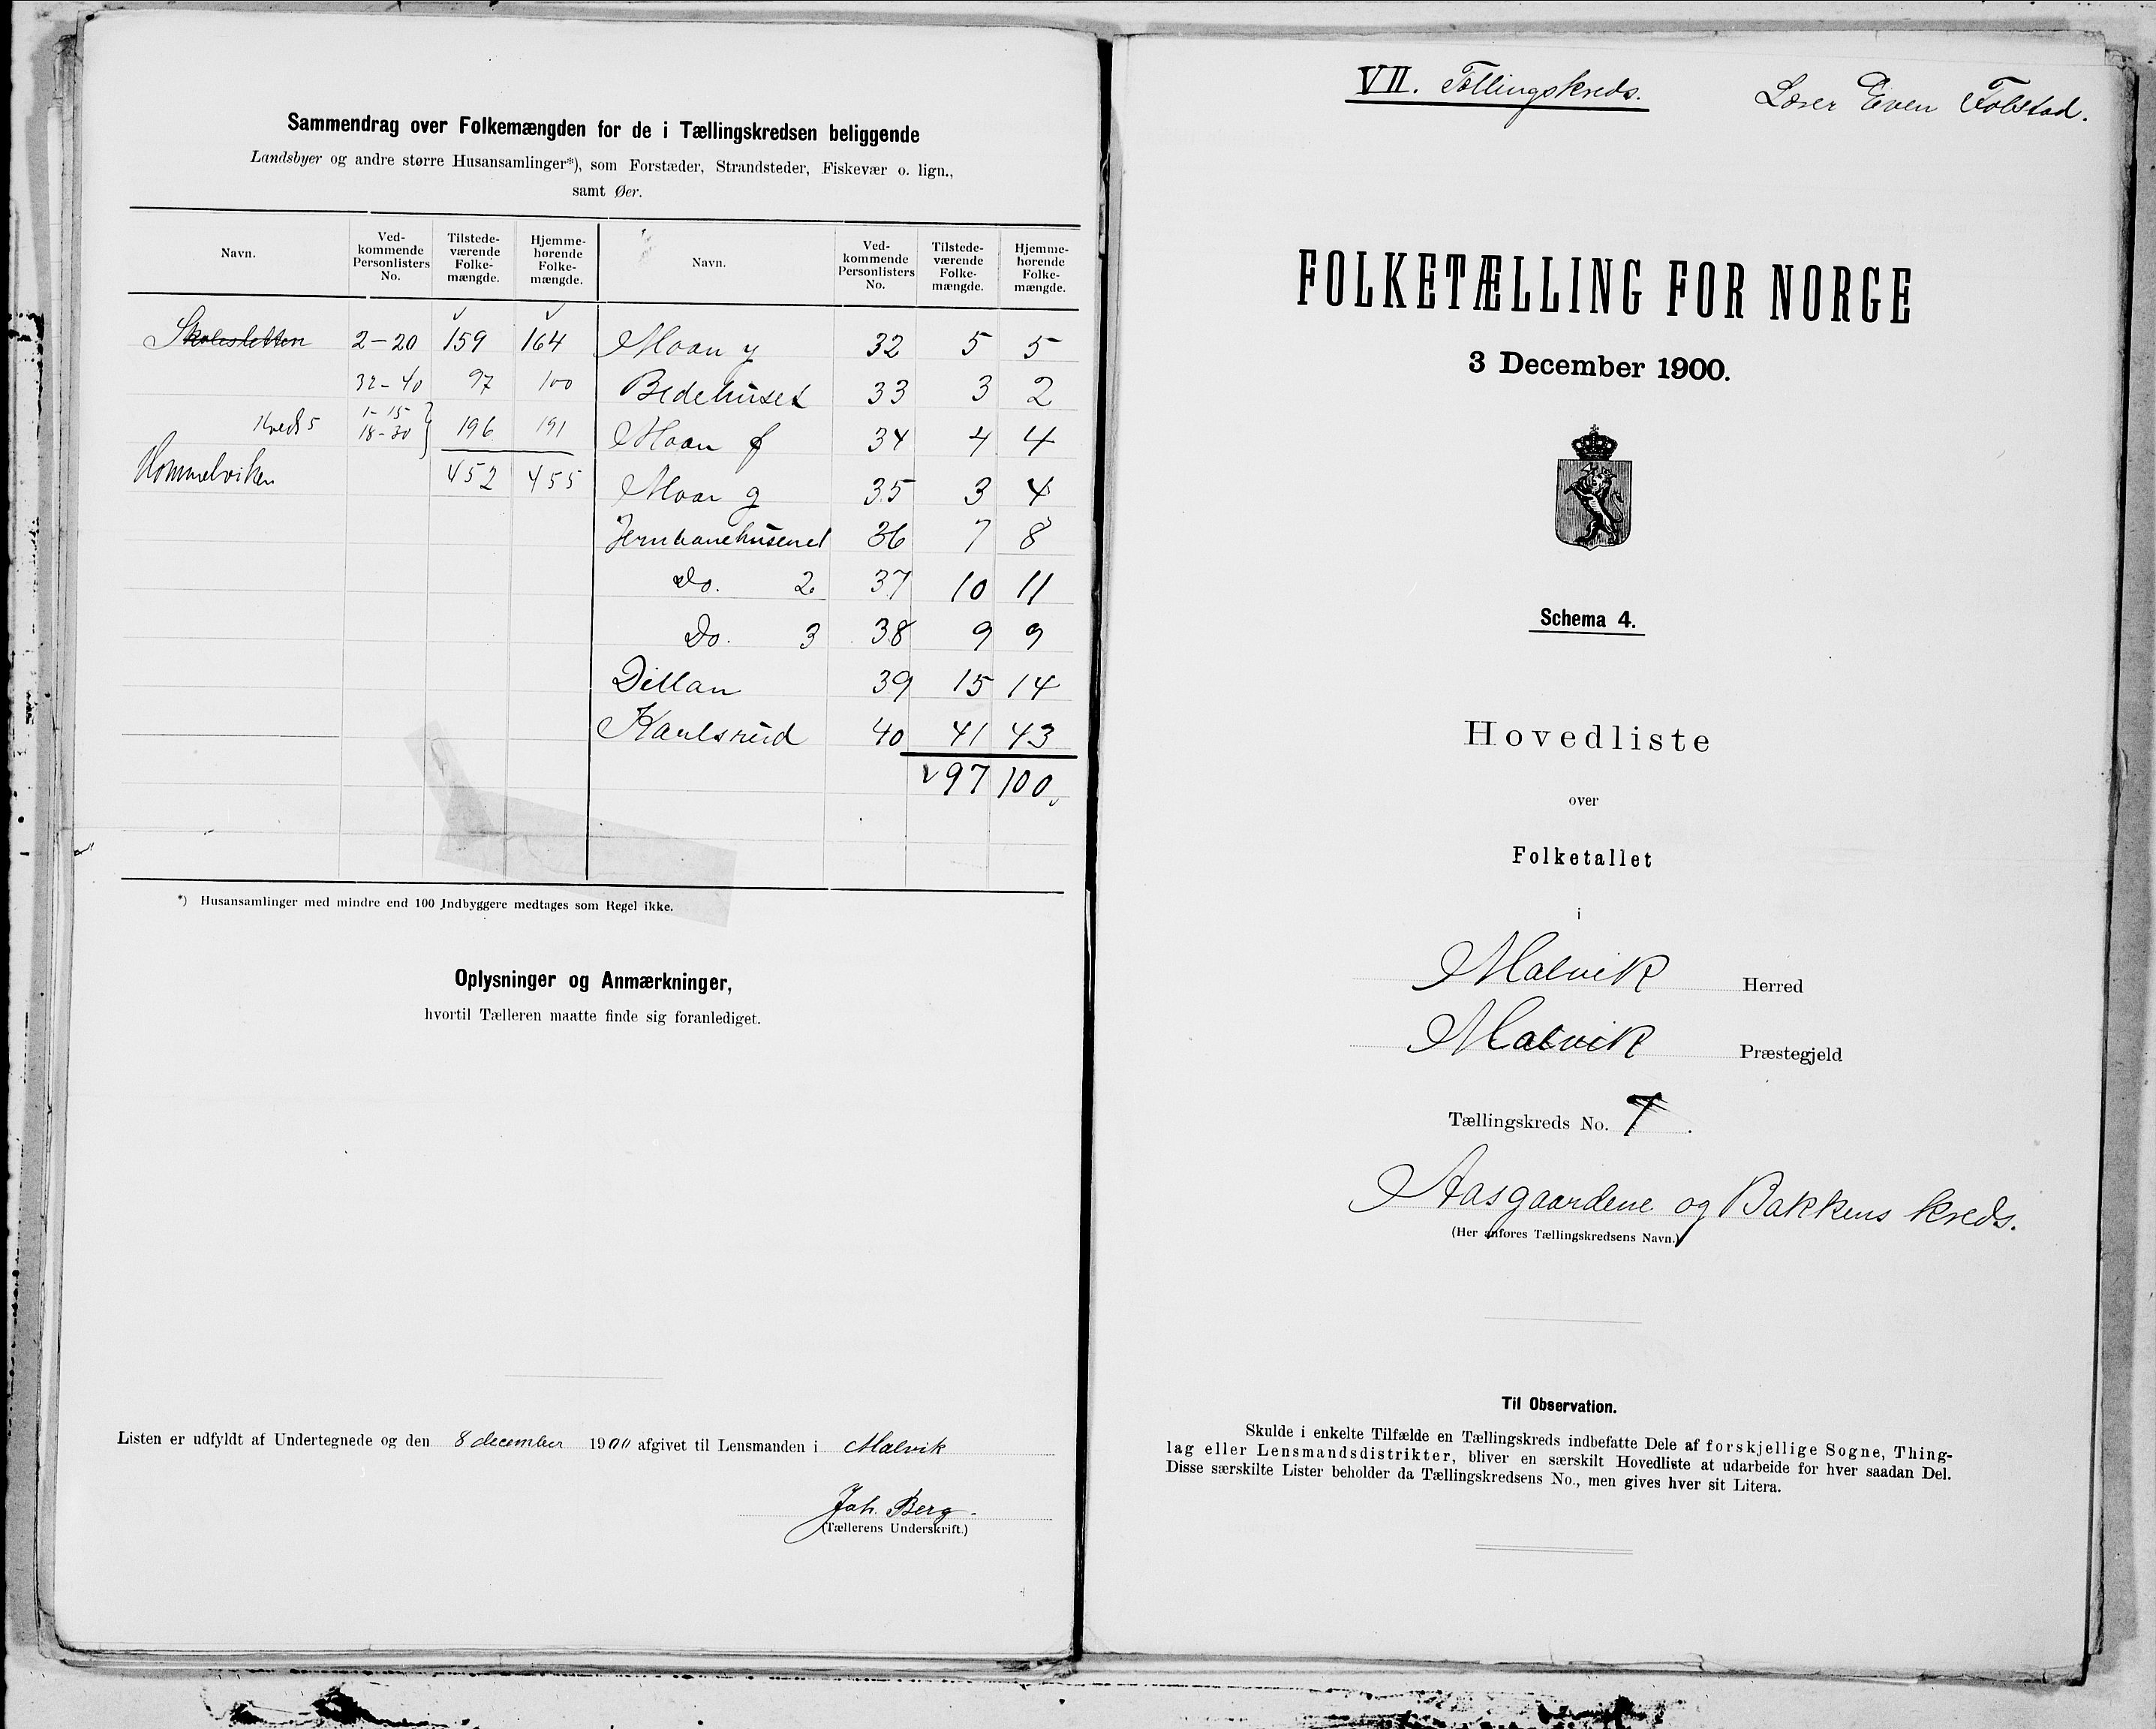 Sammendrag over Folkemængden for de i Tællingskredsen beliggende
Landsbyer og andre større Husansamlinger*), som Forstæder, Strandsteder, Fiskevær o. lign.,
samt Øer.
Navn. Ved-kommende Personlisters No. Tilstede-værende Folke-mængde. Hjemme-hørende Folke-mængde. Navn. Ved-kommende Personlisters No. Tilstede-værende Folke-mængde. Hjemme-hørende Folke-mængde.
Skolesletten 2-20 159 164 Moan y 32 5 5
32-40 97 100 Bedehuset 33 3 2
Kreds 5 1-15 18-30 196 191 Moan f 34 4 4
Hommelviken 452 455 Moan g 35 3 4
Jernbanehusene 1 36 7 8
Do. 2 37 10 11
Do. 3 38 9 9
Dillan 39 15 14
Karlsrud 40 41 43
97 100
*) Husansamlinger med mindre end 100 Indbyggere medtages som Regel ikke.
Oplysninger og Anmærkninger,
hvortil Tælleren maatte finde sig foranlediget.
Listen er udfyldt af Undertegnede og den 8 december 1900 afgivet til Lensmanden i Malvik
Joh. Berg.
(Tællerens Underskrift.)
VII. Tællingskreds. Lærer Even
FOLKETÆLLING FOR NORGE
3 December 1900.
Schema 4.
Hovedliste
over
Folketallet
i
Malvik Herred
Malvik Præstegjeld
Tællingskreds No. 7.
Aasgaardene og Bakkens kreds.
(Her anføres Tællingskredsens Navn.)
Til Observation.
Skulde i enkelte Tilfælde en Tællingskreds indbefatte Dele af forskjellige Sogne, Thing-
lag eller Lensmandsdistrikter, bliver en særskilt Hovedliste at udarbeide for hver saadan Del.
Disse særskilte Lister beholder da Tællingskredsens No., men gives hver sit Litera.